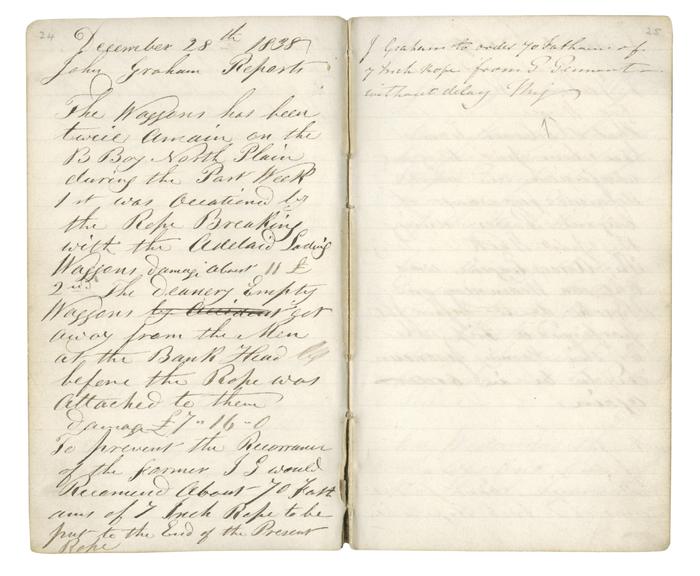 24
December 28th 1838
John Graham Reports
The Waggons has been
twice Amain on the
B Boy North Plain
during the Past Week
1st was Occationed by
the Rope Breaking
with the Adelaid Lading
Waggons damage about 11 £
2nd The deanery Empty
Waggons by Accident got
away from the Men
at the Bank Head
before the Rope was
Attached to them
damage £7-16-0
To prevent the Recorrance
of the former J G would
Recomend About 70 Fath
ams of 7 Inch Rope to be
put to the End of the Present
Rope
25
J Graham to order 70 Fathams of
7 Inch Rope from
without delay